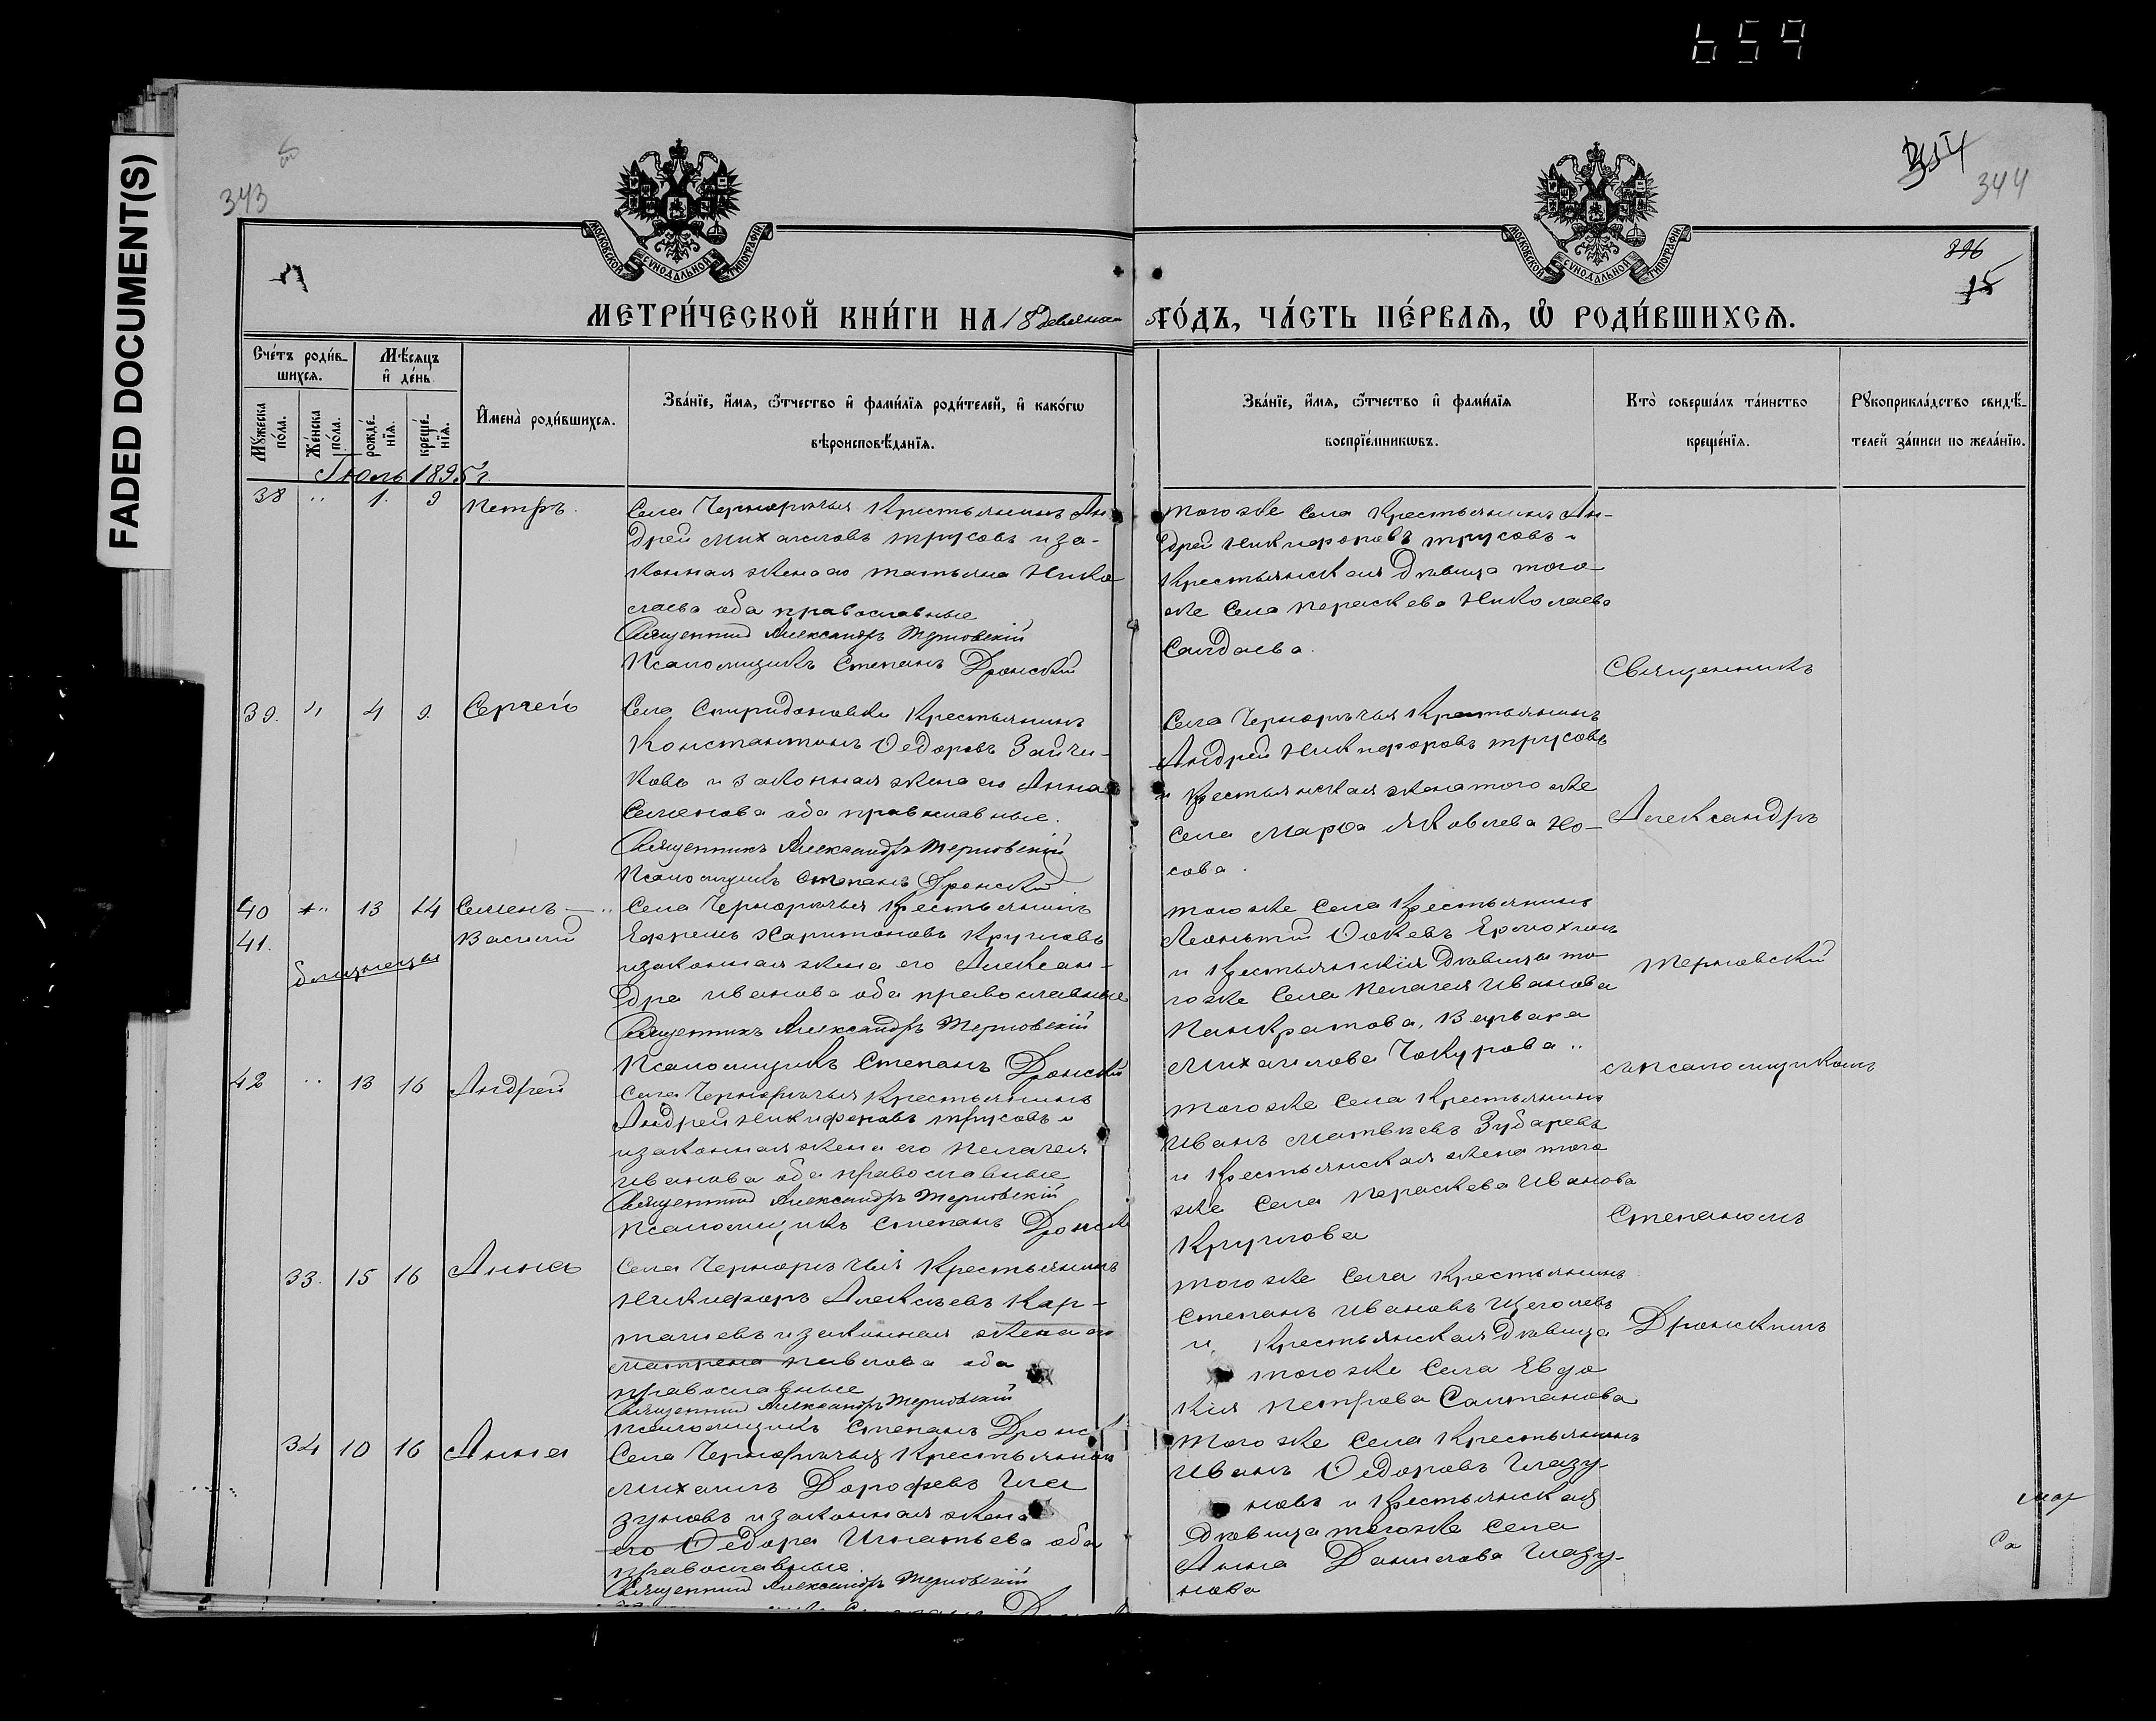 659
FADED DOCUMENT(S)
343
354
344
МОСКОВСКОЙ СѴНОДАЛЬНОЙ ТИПОГРАФІИ
МОСКОВСКОЙ СѴНОДАЛЬНОЙ ТИПОГРАФІИ
896
15
МЕТРИ́ЧЕСКОЙ КНИ́ГИ НА 18 девяно
ГО́ДЪ, ЧА́СТЬ ПЕ́РВАѦ, Ѡ҆ РОДИ́ВШИХСѦ.
Сче́тъ роди́в-
шихсѧ.
Мѣ́сяцъ
и҆ де́нь
Мꙋ́жеска
по́ла.
Же́нска
по́ла.
рожде́-
нїѧ.
креще́-
нїѧ.
И҆мена̀ роди́вшихсѧ.
Зва́нїе, и҆́мѧ, ѻ҆́тчество и҆ фами́лїѧ роди́телей, и҆ како́гѡ
вѣроисповѣ́данїѧ.
Зва́нїе, и҆́мѧ, ѻ҆́тчество и҆ фами́лїѧ
воспрїе́мникѡвъ.
Кто̀ соверша́лъ та́инство
креще́нїѧ.
Рꙋкоприкла́дство свидѣ́-
телей за́писи по жела́нїю.
Іюль 1895 г
38 " 1. 9 Петръ.
Села Чернорѣчья Крестьянинъ Ан
дрей Михаиловъ Трусовъ и за-
конная жена его Татьяна Нико
лаева оба православные
Священник Александръ Терновскій
Псаломщикъ Степанъ Дронский
тогоже села Крестьянинъ Ан-
дрей Никифоровъ Трусовъ и
Крестьянская Дѣвица того
же Села Параскева Николаева
Салдаева.
Священникъ
39. " 4 9. Сергей
Села Спиридоновки Крестьянинъ
Константинъ Ѳедоровъ Зайчи-
ковъ и законная жена его Анна
Семенова оба православные.
Священникъ Александръ Терновскій
Псаломщикъ Степанъ Дронский
Села Чернорѣчья Крестьянинъ
Андрей Никифоровъ Трусовъ
и Крестьянская жена того же
села Марѳа Яковлева Но-
сова.
Александръ
40 " 13 14 Семенъ
41. Василий
близнецы
Села Чернорѣчья Крестьянинъ
Ефремъ Харитоновъ Кругловъ
и законная жена его Алексан-
дра Иванова оба православные
Священникъ Александръ Терновскій
Псаломщикъ Степанъ Дронский
тогоже села Крестьянинъ
Леонтий Ѳокевъ Ермохинъ
и Крестьянскія Дѣвица то-
гоже Села Пелагея Иванова
Панкратова, Варвара
Михаилова Чокурова "
Терновский
съ псаломщикомъ
42 " 13 16 Андрей
Села Чернорѣчья Крестьянинъ
Андрей Никифоровъ Трусовъ и
и законная жена его Пелагея
Иванова оба православные
Священник Александръ Терновскій
Псаломщикъ Степанъ Дронск
тогоже Села Крестьянинъ
Иванъ Матвѣевъ Зубаревъ
и Крестьянская жена того
же Села Параскева Иванова
Круглова
Степаномъ
33. 15 16 Анна
Села Чернорѣчья Крестьянинъ
Никифоръ Алексѣевъ Кар-
ташевъ и законная жена его
Матрена Павлова оба
православные
Священник Александръ Терновскій
Псаломщикъ Степанъ Дронс
тогоже Села Крестьянинъ
Степанъ Ивановъ Щеголевъ
и Крестьянская Дѣвица
тогоже Села Евдо
кія Петрова Салтанова
Дронскимъ
34 10 16 Анна
Села Чернорѣчья Крестьянин
Михаилъ Дорофеевъ Гла
зуновъ и законная жена
его Ѳедора Игнатьева оба
православные.
Священник Александръ Терновскій
Тогоже Села Крестьянинъ
Иванъ Ѳедоровъ Глазу-
новъ и Крестьянская
Дѣвица тогоже Села
Анна Данилова Глазу-
нова